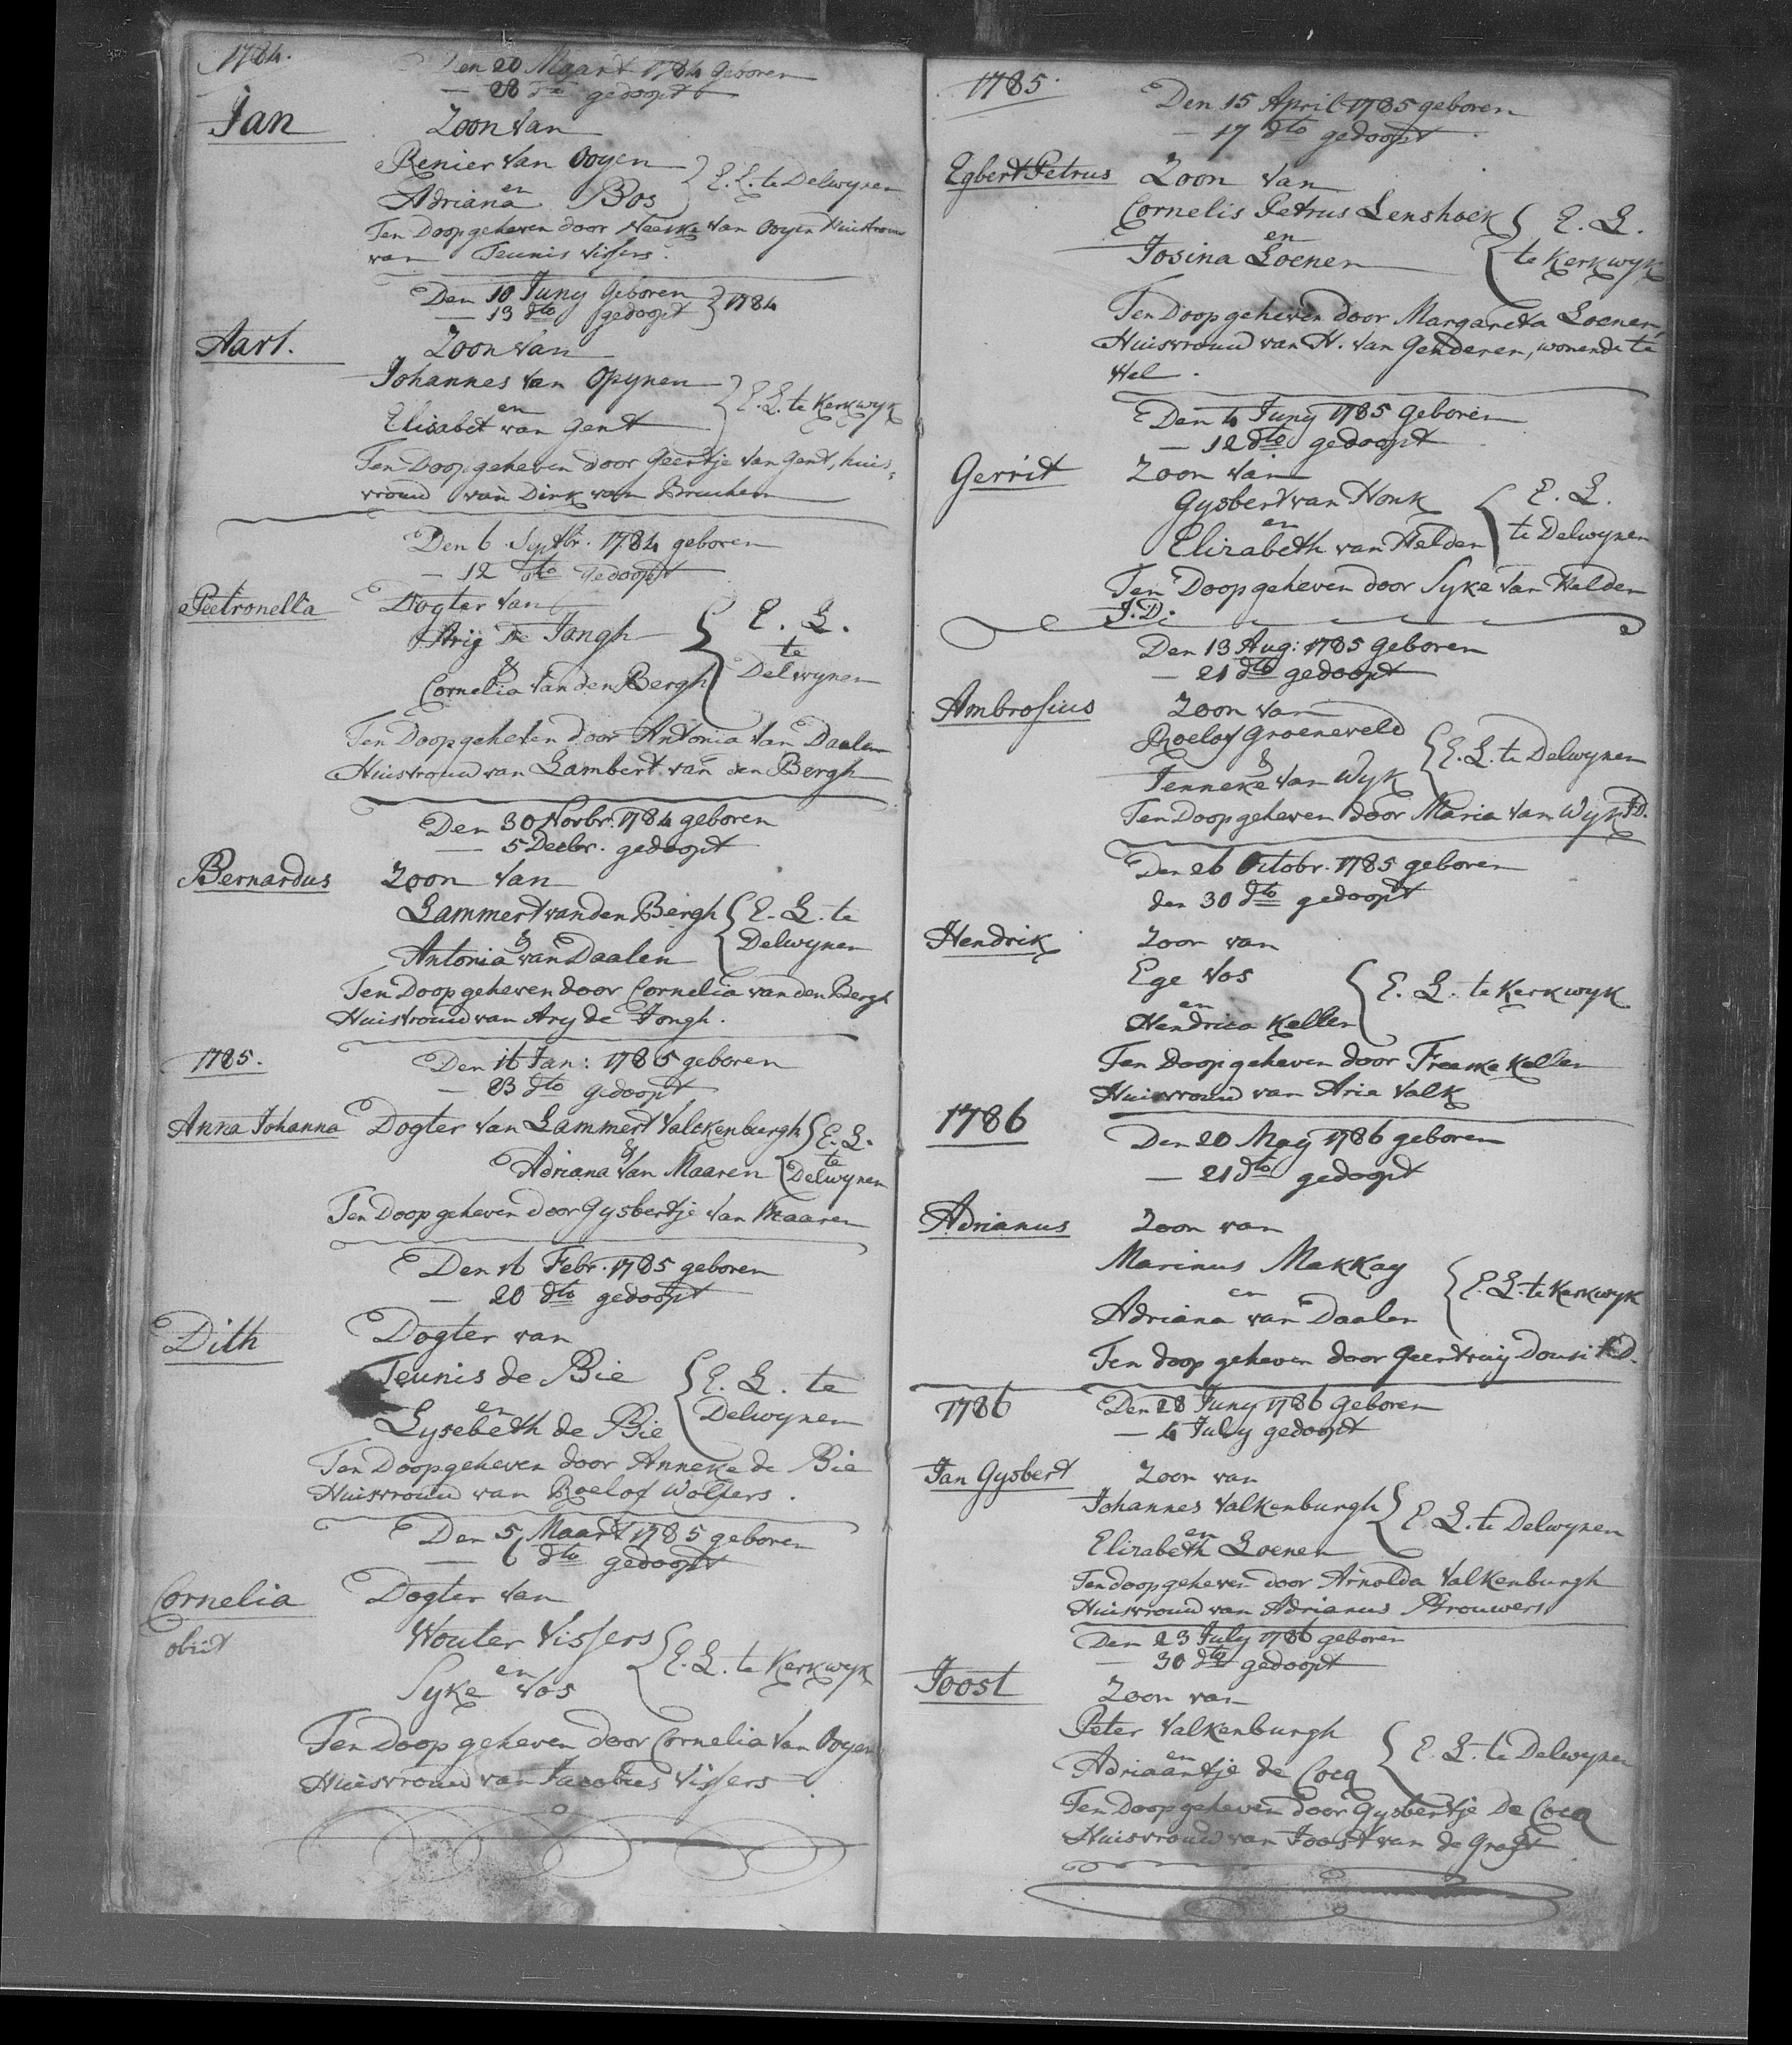 1784.
Den 20 Maart 1784 geboren
— 28 dto gedoopt
Jan Zoon van
Renier van Ooyen
en } E. L. te Delwynen
Adriana Bos
Ten Doop geheven door Neeske van Ooyen Huisvrouw
van Teunis Vissers.
Den 10 Juny Geboren } 1784
— 13 dto gedoopt
Aart. Zoon van
Johannes van Opynen
en } E. L. te Kerkwyk
Elisabet van Gent
Ten Doop geheven door Geertje van Gent, huis=
vrouw van Dirk van Bruchem
Den 6 Septbr. 1784 geboren
— 12 dto Gedoopt
Peetronella Dogter van
Arij de Jongh { E. L.
& te
Cornelia van den Bergh Delwynen
Ten Doop geheven door Antonia van Daalen
Huisvrouw van Lambert van den Bergh
Den 30 Novbr. 1784 geboren
— 5 Decbr. gedoopt
Bernardus Zoon van
Lammert van den Bergh { E. L. te
& Delwynen
Antonia van Daalen
Ten Doop geheven door Cornelia van den Bergh
Huisvrouw van Ary de Jongh.
1785. Den 16 Jan: 1785 geboren
— 23 dto gedoopt
Anna Johanna Dogter van Lammert Valckenburgh { E. L.
& te
Adriana van Maaren Delwynen
Ten Doop geheven door Gysbertje van Maaren
Den 16 Febr. 1785 geboren
— 20 dto gedoopt
Dith Dogter van
Teunis de Bie { E. L. te
en Delwynen
Lysebeth de Bie
Ten Doop geheven door Anneke de Bie
Huisvrouw van Roelof Wolfers.
Den 5 Maart 1785 geboren
— 6 dto gedoopt
Cornelia Dogter van
obiit Wouter Vissers
en { E. L. te Kerkwyk
Syke Vos
Ten Doop geheven door Cornelia van Ooyen
Huisvrouw van Jacobus Vissers
1785.
Den 15 April 1785 geboren
— 17 dto gedoopt
Egbert Petrus Zoon van
Cornelis Petrus Lenshoek { E. L.
en te Kerkwyk
Josina Loenen
Ten Doop geheven door Margareta Loenen,
Huisvrouw van H. van Genderen, wonende te
Hel.
Den 4 Juny 1785 geboren
— 12 dto gedoopt
Gerrit Zoon van
Gysbert van Honk { E. L.
en te Delwynen
Elizabeth van Helden
Ten Doop geheven door Syke van Helden
J.D.
Den 13 Aug: 1785 geboren
— 21 dto gedoopt
Ambrosius Zoon van
Roelof Groeneveld
& { E. L. te Delwynen
Jenneke van Wyk
Ten Doop geheven door Maria van Wyk J.D.
Den 26 Octobr. 1785 geboren
den 30 dto gedoopt
Hendrik Zoon van
Ege Vos
en { E. L. te Kerkwyk
Hendrica Keller
Ten Doop geheven door Freeske Keller
Huisvrouw van Arie Valk
1786 Den 20 May 1786 geboren
— 21 dto gedoopt
Adrianus Zoon van
Marinus Makkay
en { E. L. te Kerkwyk
Adriana van Daalen
Ten doop geheven door Geertruij J.D.
1786 Den 28 Juny 1786 Geboren
— 4 July gedoopt
Jan Gysbert Zoon van
Johannes Valkenburgh
en { E. L. te Delwynen
Elizabeth Loenen
Ten doop geheven door Arnolda Valkenburgh
Huisvrouw van Adrianus Brouwers
Den 23 July 1786 geboren
— 30 dto gedoopt
Joost Zoon van
Peter Valkenburgh
en { E. L. te Delwynen
Adriaantje de Cocq
Ten Doop geheven door Gysbertje De Cocq
Huisvrouw van Joost van de Graft